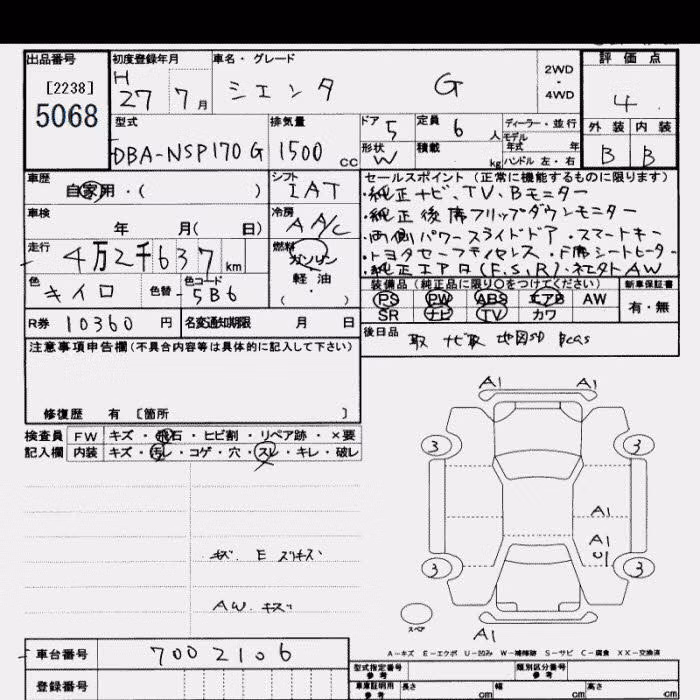 出品番号 初度登録年月 車名・グレード 評価点
[2238]
5068
H 27 7月 シエンタ G 2WD・4WD 4
型式 排気量 ドア 5 定員 6人 ディーラー・並行 外装 内装
DBA-NSP170G 1500cc 形状 W 積載 kg モデル年式 年 ハンドル 左・右 B B
車歴 自家用・( ) シフト IAT
セールスポイント(正常に機能するものに限ります)
・純正ナビ、TV、Bモニター
車検 年 月( 日) 冷房 AA/C
・純正後席フリップダウンモニター
・両側パワースライドドア・スマートキー
走行 4万2千637km 燃料 ガソリン
軽油
・( )
・トヨタセーフティセンス・F席シートヒーター
・純正エアロ(F,S,R)・AW
色 キイロ 色替 色コード 5B6
装備品(純正品に限り○をつけてください) 新車保証書
PS PW ABS エアB AW 有・無
SR ナビ TV カワ
R券 10360円 名変通知期限 月 日
後日品 取 ナビ取 地図SD Bcas
注意事項申告欄(不具合内容等は具体的に記入して下さい)
修復歴 有 〔箇所 〕
検査員 FW キズ・飛石・ヒビ割・リペア跡・×要
記入欄 内装 キズ・汚レ・コゲ・穴・スレ・キレ・破レ
A1 A1
3 3
A1
A1
U1
3 3
キズ E スリキズ
AW キズ
スペア
A1
A-キズ E-エクボ U-凹み W-補修跡 S-サビ C-腐食 XX-交換済
車台番号 7002106
登録番号
型式指定番号 参考 類別区分番号 参考
車庫証明用 参考 長さ cm 幅 cm 高さ cm